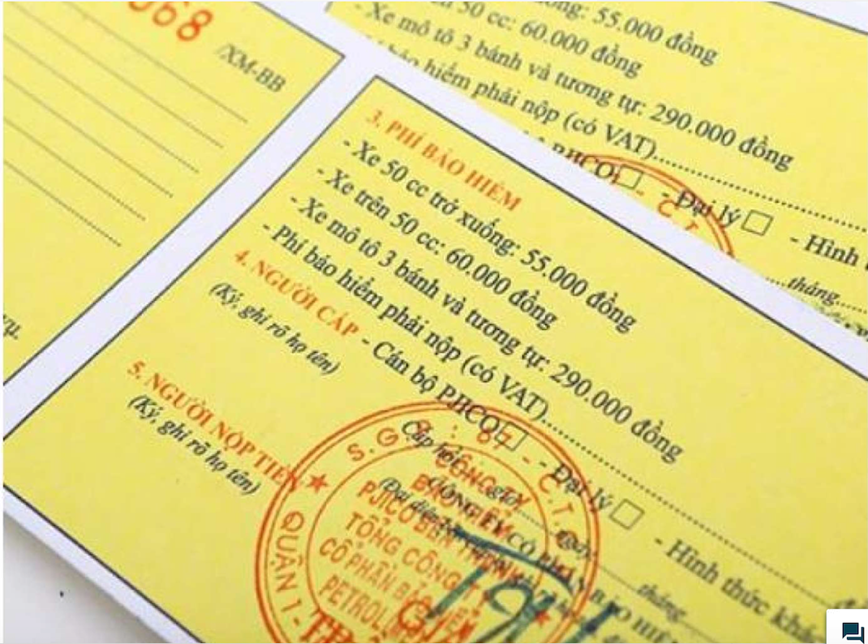 068 /XM-BB
50 cc: 60.000 đồng
55.000 đồng
- Xe mô tô 3 bánh và tương tự: 290.000 đồng
bảo hiểm phải nộp (có VAT)
PJICO □ - Đại lý □ - Hình
tháng
3. PHÍ BẢO HIỂM
- Xe 50 cc trở xuống: 55.000 đồng
- Xe trên 50 cc: 60.000 đồng
- Xe mô tô 3 bánh và tương tự: 290.000 đồng
- Phí bảo hiểm phải nộp (có VAT)
4. NGƯỜI CẤP - Cán bộ PJICO □ - Đại lý □ - Hình thức
(Ký, ghi rõ họ tên)
tháng
5. NGƯỜI NỘP TIỀN
(Ký, ghi rõ họ tên)
CÔNG TY
BẢO HIỂM
PJICO BẾN THÀNH
TỔNG CÔNG TY
CỔ PHẦN BẢO HIỂM
QUẬN 1